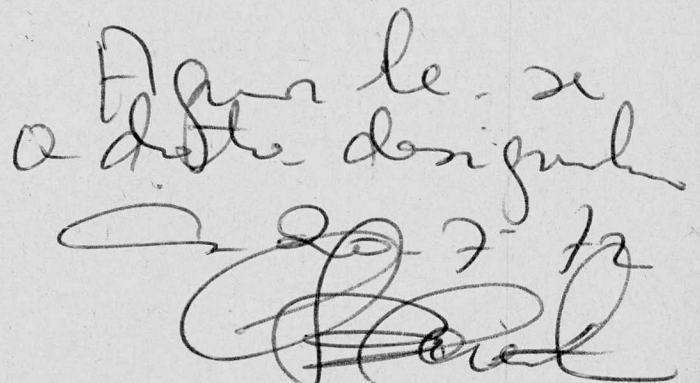 Aguarde-se
a data designada
20-7-72